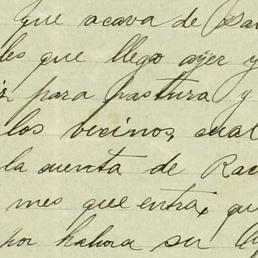 que acava de
les que llego ayer y
para pastura y
los vecinos, cual
la cuenta de Rac
mes que entra, qu
por hahora su